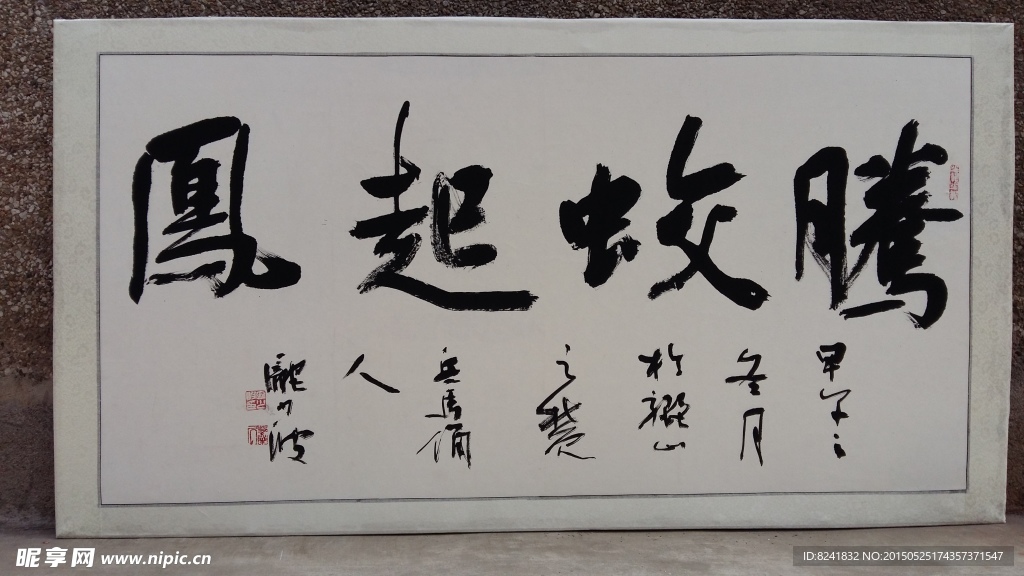 騰蛟起鳳
甲午之
冬月
於骊山
之麓
兵馬俑
人
昵享网 www.nipic.cn
ID:8241832 NO:20150525174357371547